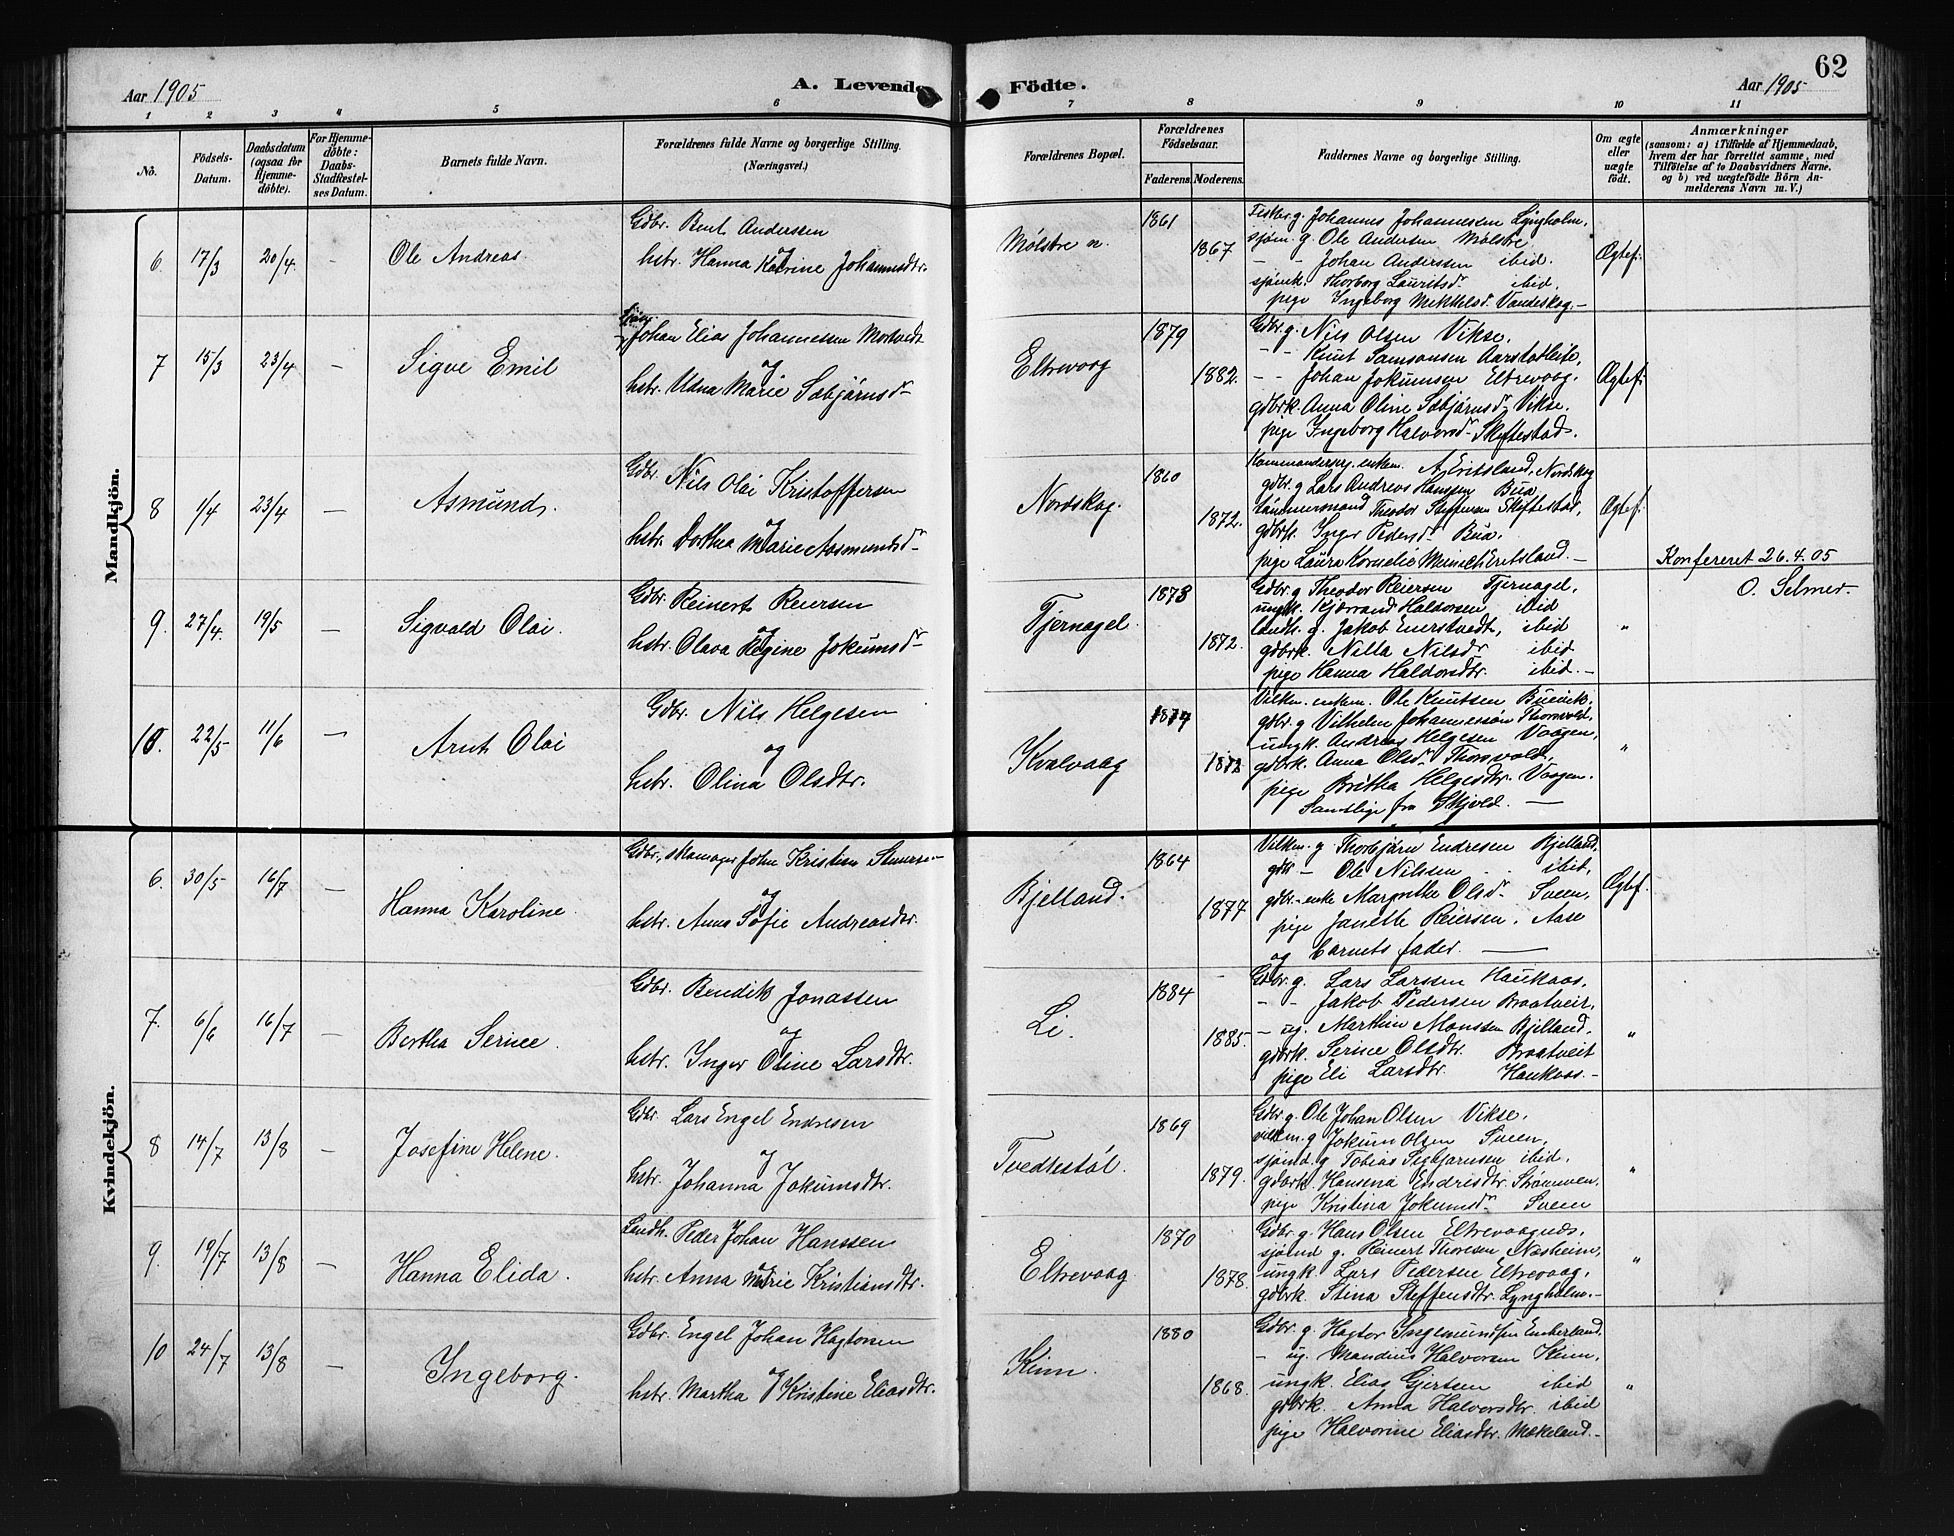 Aar 1905
A. Levende Födte.
Aar 1905
62
1 2 3 4 5 6 7 8 9 10 11
No.
Födsels-Datum.
Daabsdatum (ogsaa for Hjemmedöbte).
For Hjemmedöbte: Daabs-Stadfæstelses Datum.
Barnets fulde Navn.
Forældrenes fulde Navne og borgerlige Stilling. (Næringsvei.)
Forældrenes Bopæl.
Forældrenes Födselsaar.
Faderens. Moderens.
Faddernes Navne og borgerlige Stilling.
Om ægte eller uægte födt.
Anmærkninger
(saasom: a) i Tilfælde af Hjemmedaab, hvem der har forrettet samme, med Tilföielse af to Daabsvidners Navne, og b) ved uægtefödte Börn Anmelderens Navn m. V.)
Mandkjön.
6 17/3 20/4 - Ole Andreas
Gdbr. Bent Anderssen
og
hstr. Hanna Katrine Johannesdtr.
Mølstre n. 1861 1867
Johannes Johannessen Lyngholm,
sjøm. g. Ole Andersen Mølstre
- - Johan Anderssen ibid.
sjømk. Thorborg Lauritsdr ibid.
pige Ingeborg Vandeskog.-
Ægtef.
7 15/3 23/4 - Sigve Emil
Johan Elias Johannessen
og
hstr. Udna Marie Sæbjørnsdr
Eltrevaag 1879 1882.
Gdbr. g. Nils Olsen Vikse.
- - Knut Samsonsen Aarstadleite,
- - Johan Jokumsen Eltrevaag.
gdbrk. Anna Oline Sæbjørnsdr Vikse.
pige Ingeborg Halvorsdr Skiftestad.
Ægtef.
8 1/4 23/4 - Asmund.
Gdbr. Nils Olai Kristoffersen
og
hstr. Dorthea Marie Aasmundsdr
Nordskog. 1860 1872.
enkem. Nordskog
gdbr. g Lars Andreas Hanssen Bua,
Theodor Steffensen Skiftestad,
gdbrk. Inger Pedersdr Bua.
pige Laura Kornelie
Ægtef.
Konfereret 26.4.05
O. Selmer.
9. 27/4. 19/5 - Sigvald Olai.
Gdbr. Reinert Reiersen
og
hstr. Olava Regine Jokumsdr
Tjernagel. 1873 1872.
Gdbr. g Theodor Reiersen Tjernagel,
ungk. Haldorsen ibid
landh. g. Jakob ibid
gdbrk. Nilla Nilsdr ibid
pige Hanna Haldorsdtr. ibid.-
"
10. 22/5 11/6 - Arnt Olai
Gdbr. Nils Helgesen
og
hstr. Olina Olsdtr.
Kvalvaag 1874 1872
enkem. Ole Knutsen
gdbr. g Vilhelm Johannessen Thorsvold,
ungk. Andreas Helgesen Vaagen,
gdbrk. Anna Olsdr Thorsvold,
pige Britha Helgesdtr. Vaagen.
Samtlige fra Skjold.
"
Kvindekjön.
6. 30/5 16/7 - Hanna Karoline.
Kristian
og
hstr. Anna Sofie Andreasdtr.
Bjelland. 1864 1877
g Thorbjørn Endresen Bjelland,
Ole Nilsen ibid,
gdbr.-enke Margrethe Olsdr Sveen,
pige Janette Reiersen, Aase
og barnets fader.
Ægtef.
7. 6/6 16/7 - Bertha Serine.
Gdbr. Bendik Jonassen
og
hstr. Inger Oline Larsdtr.
Li. 1884 1885.
Gdbr. g. Lars Larssen Haukaas,
- - Jakob Pedersen Braatveit,
- ug. Marthin Monssen Bjelland,
gdbrk. Serine Olsdtr. Braatveit
pige Eli Larsdtr. Haukaas.-
"
8 14/7 13/8 - Josefine Helene.
Gdbr. Lars Engel Endresen
og
hstr. Johanna Jokumsdtr.
Tvedtestøl. 1869 1879.
Gdbr. g. Ole Johan Olsen Vikse.
g Jokum Olsen Sveen,
g Tobias ibid.
gdbrk. Hansena Endresdtr.
pige Kristina Jokumsdr Sveen
"
9. 19/7 13/8 - Hanna Elida.
Landh. Peder Johan Hanssen
og
hstr. Anna Marie Kristiansdtr.
Eltrevaag 1870 1878.
Gdbr. g. Hans Olsen
g. Reinert Thoresen Næsheim,
ungk. Lars Pedersen Eltrevaag,
gdbrk. Stina Steffensdtr. Lyngholm.-
"
10 24/7 13/8 - Ingeborg.
Gdbr. Engel Johan Hagtorsen
og
hstr. Martha Kristine Eliasdtr.
Keim. 1880 1868.
Gdbr. g. Hagtor Ingemundsen Emberland.
- ug. Mandius Halvorsen Keim,
ungk. Elias Gjertsen ibid
gdbrk. Anna Halvorsdtr. ibid
pige Halvorine Eliasdtr. Mækeland.-
"